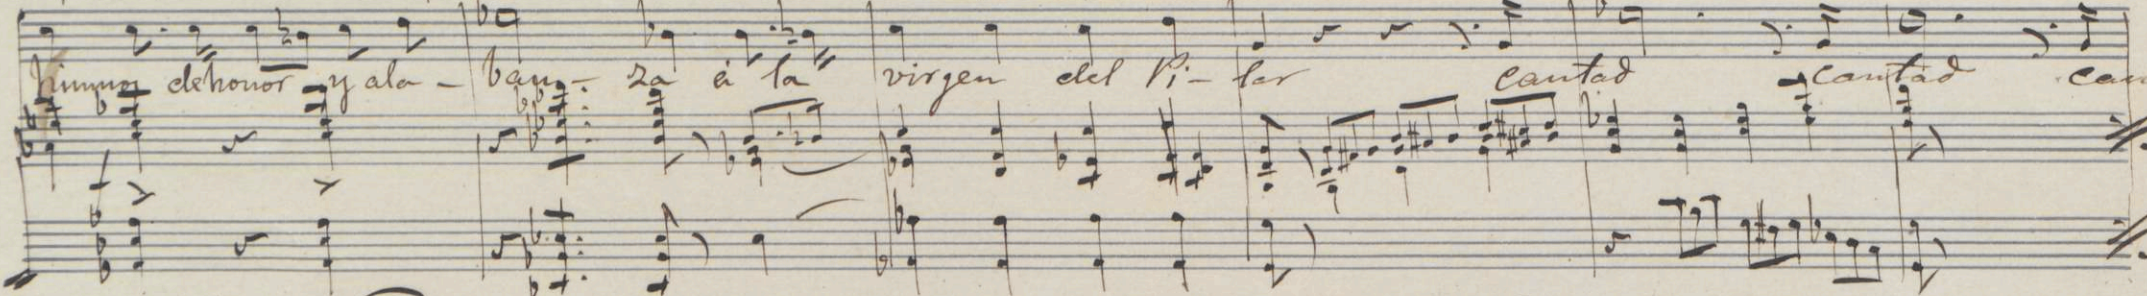 himnos de honor y ala - ban - za á la virgen del Pi - lar cantad cantad can